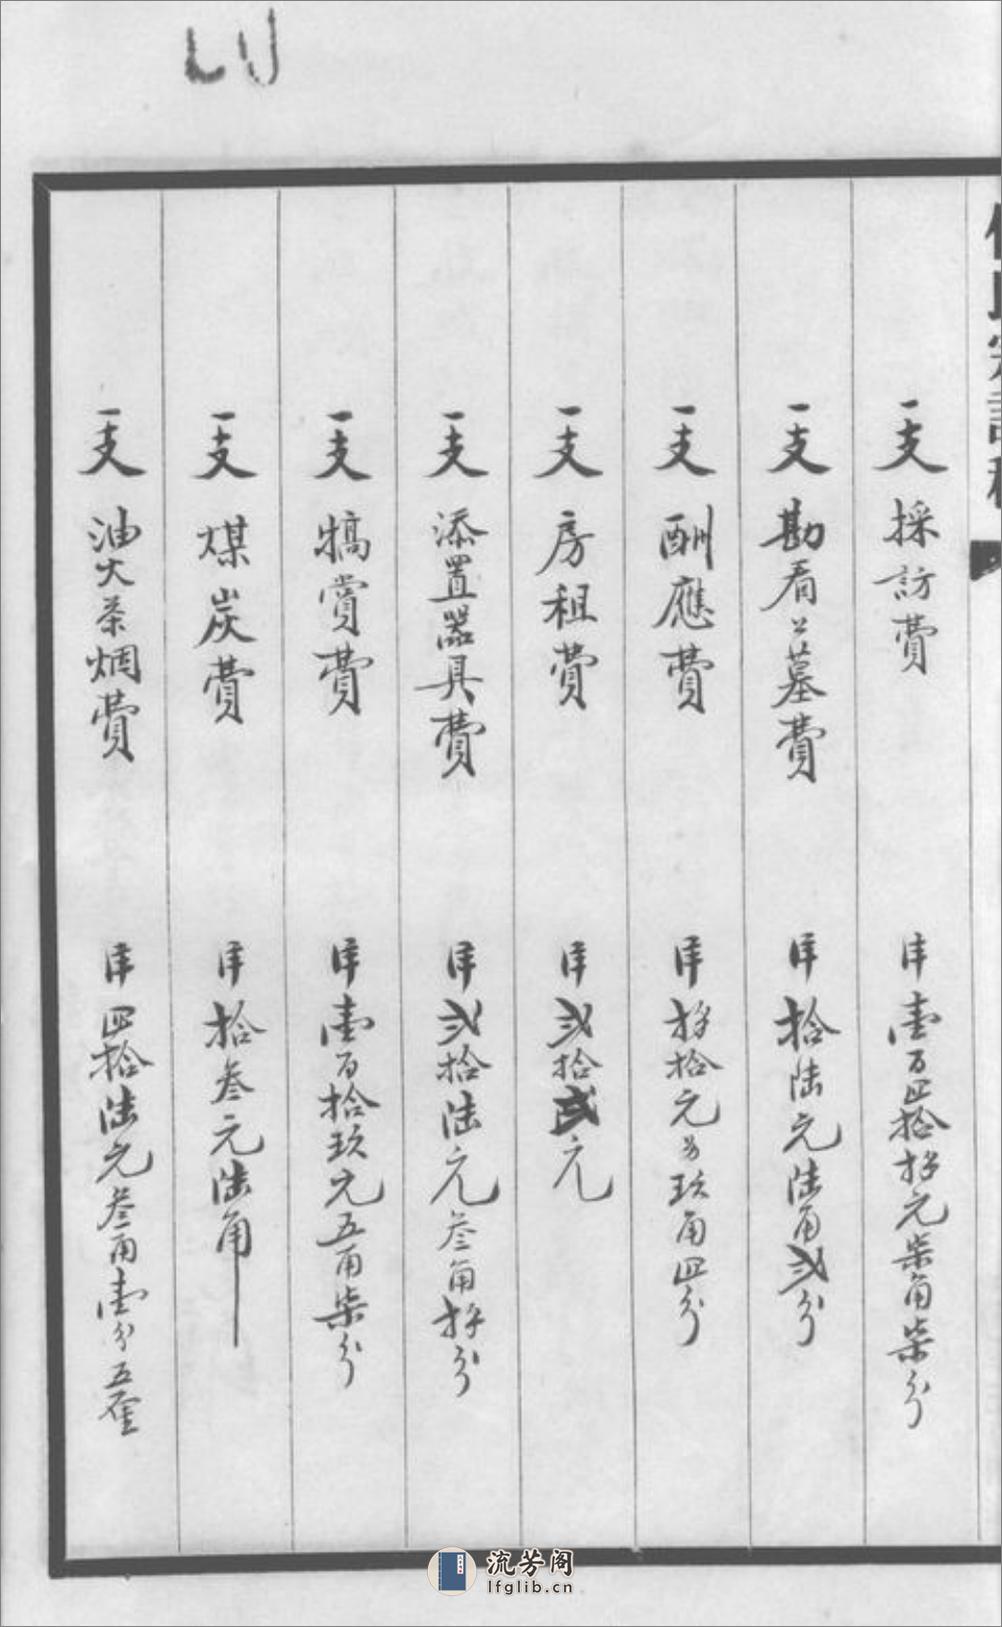 一支 採訪費 洋壹百四拾捌元柒角柒分
一支 勘看公墓費 洋拾陆元陆角弍分
一支 酬應費 洋捌拾元另玖角四分
一支 房租費 洋弍拾弍元
一支 添置器具費 洋弍拾陆元叁角捌分
一支 犒賞費 洋壹百拾玖元五角柒分
一支 煤炭費 洋拾叁元陆角
一支 油火茶烟費 洋四拾陆元叁角壹分五厘
流芳阁
lfglib.cn